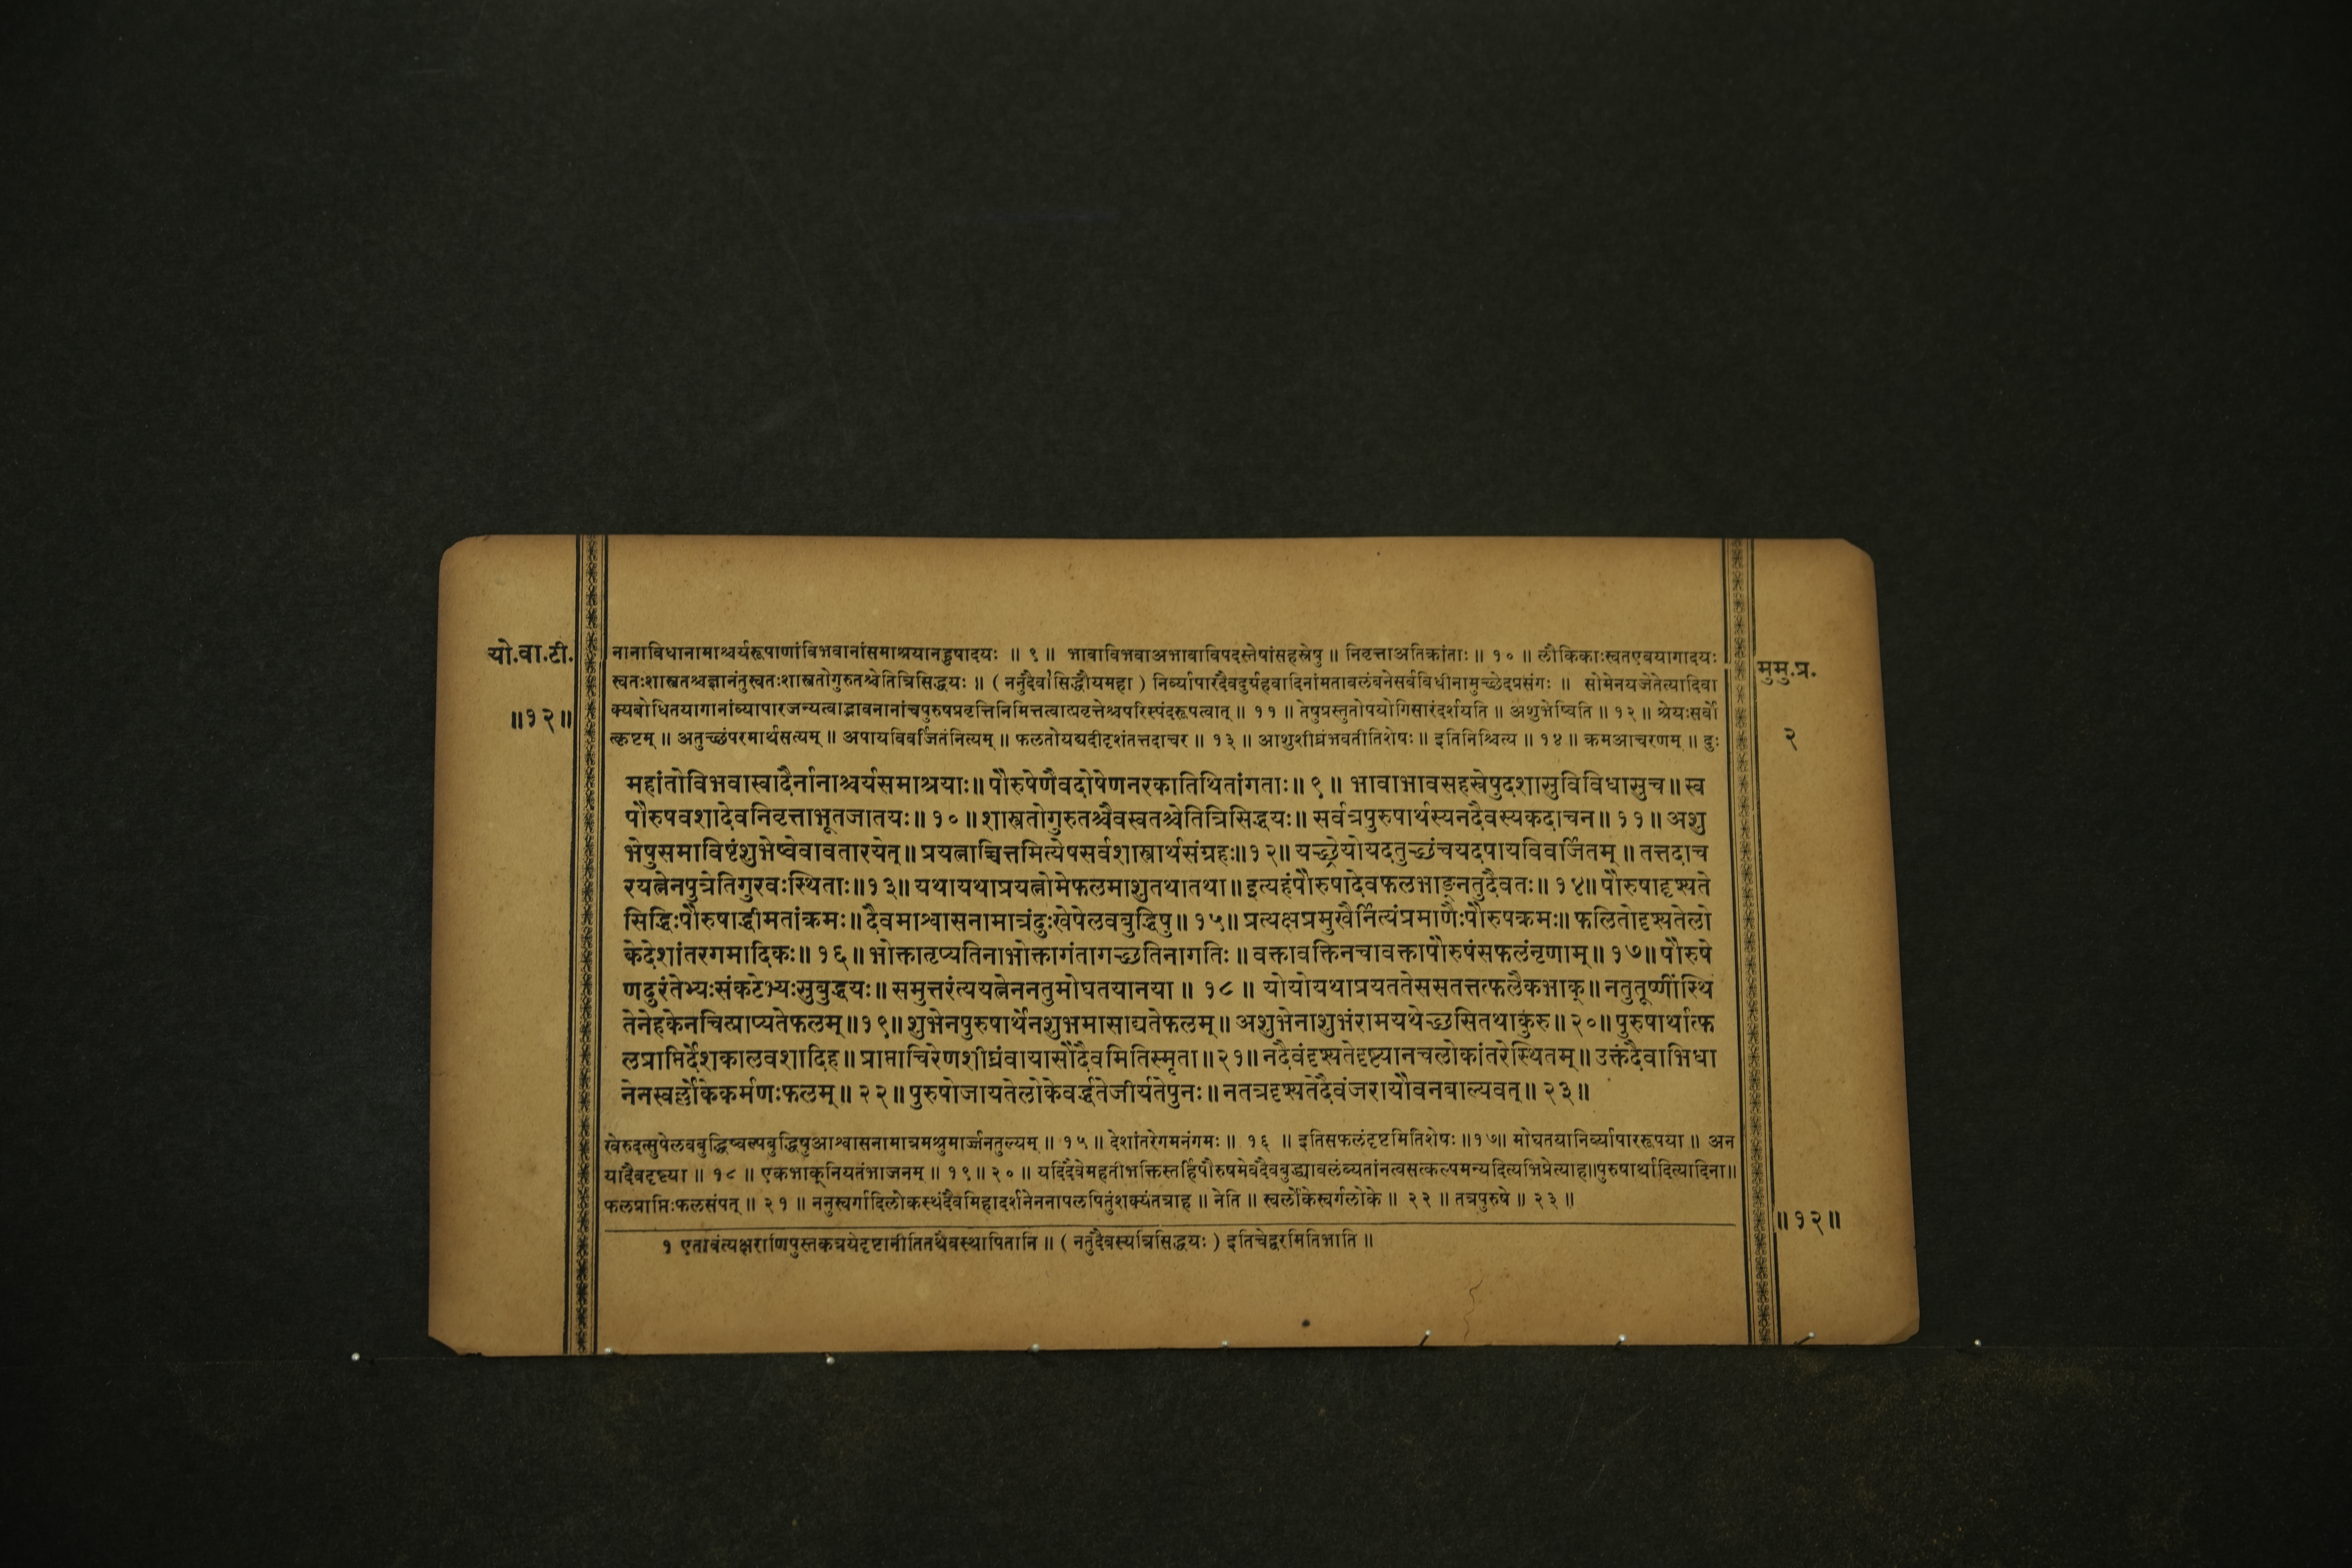 यो.वा.टी.
॥१२॥
नानाविधानामाश्चर्यरूपाणांविभवानांसमाश्रयानहुषादयः ॥ ९ ॥ भावाविभवाअभावाविपदस्तेषांसहस्रेषु ॥ निवृत्ताअतिक्रांताः ॥ १० ॥ लौकिकाःस्वतएवयागादयः
स्वतःशास्त्रतश्चज्ञानंतुस्वतःशास्त्रतोगुरुतश्चेतित्रिसिद्धयः ॥ ( ननुदैवासिद्धौयमहा ) निर्व्यापारदैवदुर्ग्रहवादिनांमतावलंबनेसर्वविधीनामुच्छेदप्रसंगः ॥ सोमेनयजेतेत्यादिवा
क्यबोधितयागानांव्यापारजन्यत्वाद्भावनानांचपुरुषप्रवृत्तिनिमित्तत्वात्प्रवृत्तेश्चपरिस्पंदरूपत्वात् ॥ ११ ॥ तेषुप्रस्तुतोपयोगिसारंदर्शयति ॥ अशुभेष्विति ॥ १२ ॥ श्रेयःसर्वो
त्कृष्टम् ॥ अतुच्छंपरमार्थसत्यम् ॥ अपायविवर्जितंनित्यम् ॥ फलतोयद्यदीदृशंतत्तदाचर ॥ १३ ॥ आशुशीघ्रंभवतीतिशेषः ॥ इतिनिश्चित्य ॥ १४ ॥ क्रमआचरणम् ॥ दुः
महांतोविभवास्वादैर्नानाश्चर्यसमाश्रयाः॥ पौरुषेणैवदोषेणनरकातिथितांगताः॥ ९ ॥ भावाभावसहस्रेषुदशासुविविधासुच॥ स्व
पौरुषवशादेवनिवृत्ताभूतजातयः॥ १०॥ शास्त्रतोगुरुतश्चैवस्वतश्चेतित्रिसिद्धयः॥ सर्वत्रपुरुषार्थस्यनदैवस्यकदाचन॥ ११॥ अशु
भेषुसमाविष्टंशुभेष्वेवावतारयेत्॥ प्रयत्नाच्चित्तमित्येषसर्वशास्त्रार्थसंग्रहः॥१२॥ यच्छ्रेयोयदतुच्छंचयदपायविवर्जितम् ॥ तत्तदाच
रयत्नेनपुत्रेतिगुरवःस्थिताः॥१३॥ यथायथाप्रयत्नोमेफलमाशुतथातथा॥ इत्यहंपौरुषादेवफलभाङ्नतुदैवतः॥ १४॥ पौरुषादृश्यते
सिद्धिःपौरुषाद्धीमतांक्रमः॥ दैवमाश्वासनामात्रंदुःखेपेलवबुद्धिषु॥ १५॥ प्रत्यक्षप्रमुखैर्नित्यंप्रमाणैःपौरुषक्रमः॥ फलितोदृश्यतेलो
केदेशांतरगमादिकः॥ १६॥ भोक्तातृप्यतिनाभोक्तागंतागच्छतिनागतिः ॥ वक्तावक्तिनचावक्तापौरुषंसफलंनृणाम्॥ १७॥ पौरुषे
णदुरंतेभ्यःसंकटेभ्यःसुबुद्धयः॥ समुत्तरंत्ययत्नेननतुमोघतयानया ॥ १८ ॥ योयोयथाप्रयततेससतत्तत्फलैकभाक्॥ नतुतूष्णींस्थि
तेनेहकेनचित्प्राप्यतेफलम्॥१९॥ शुभेनपुरुषार्थेनशुभमासाद्यतेफलम्॥ अशुभेनाशुभंरामयथेच्छसितथाकुरु॥ २०॥ पुरुषार्थात्फ
लप्राप्तिर्देशकालवशादिह॥ प्राप्ताचिरेणशीघ्रंवायासौदैवमितिस्मृता॥२१॥ नदैवंदृश्यतेदृष्ट्यानचलोकांतरेस्थितम्॥ उक्तंदैवाभिधा
नेनस्वर्लोकेकर्मणःफलम्॥ २२॥ पुरुषोजायतेलोकेवर्द्धतेजीर्यतेपुनः॥ नतत्रदृश्यतेदैवंजरायौवनबाल्यवत्॥ २३॥
खेरुदत्सुपेलवबुद्धिष्वल्पबुद्धिषुआश्वासनामात्रमश्रुमार्ज्जनतुल्यम् ॥ १५ ॥ देशांतरेगमनंगमः ॥ १६ ॥ इतिसफलंदृष्टमितिशेषः ॥१७॥ मोघतयानिर्व्यापाररूपया ॥ अन
यादैवदृष्ट्या ॥ १८ ॥ एकभाक्नियतंभाजनम् ॥ १९॥ २० ॥ यदिदैवेमहतीभक्तिस्तर्हिपौरुषमेवदैवबुद्ध्यावलंब्यतांनत्वसत्कल्पमन्यदित्यभिप्रेत्याह॥पुरुषार्थादित्यादिना॥
फलप्राप्तिःफलसंपत् ॥ २१ ॥ ननुस्वर्गादिलोकस्थंदैवमिहादर्शनेननापलपितुंशक्यंतत्राह ॥ नेति ॥ स्वर्लोकेस्वर्गलोके ॥ २२ ॥ तत्रपुरुषे ॥ २३ ॥
१ एतावंत्यक्षराणिपुस्तकत्रयेदृष्टानीतितथैवस्थापितानि ॥ ( नतुदैवस्यत्रिसिद्धयः ) इतिचेद्वरमितिभाति ॥
मुमु.प्र.
२
॥१२॥